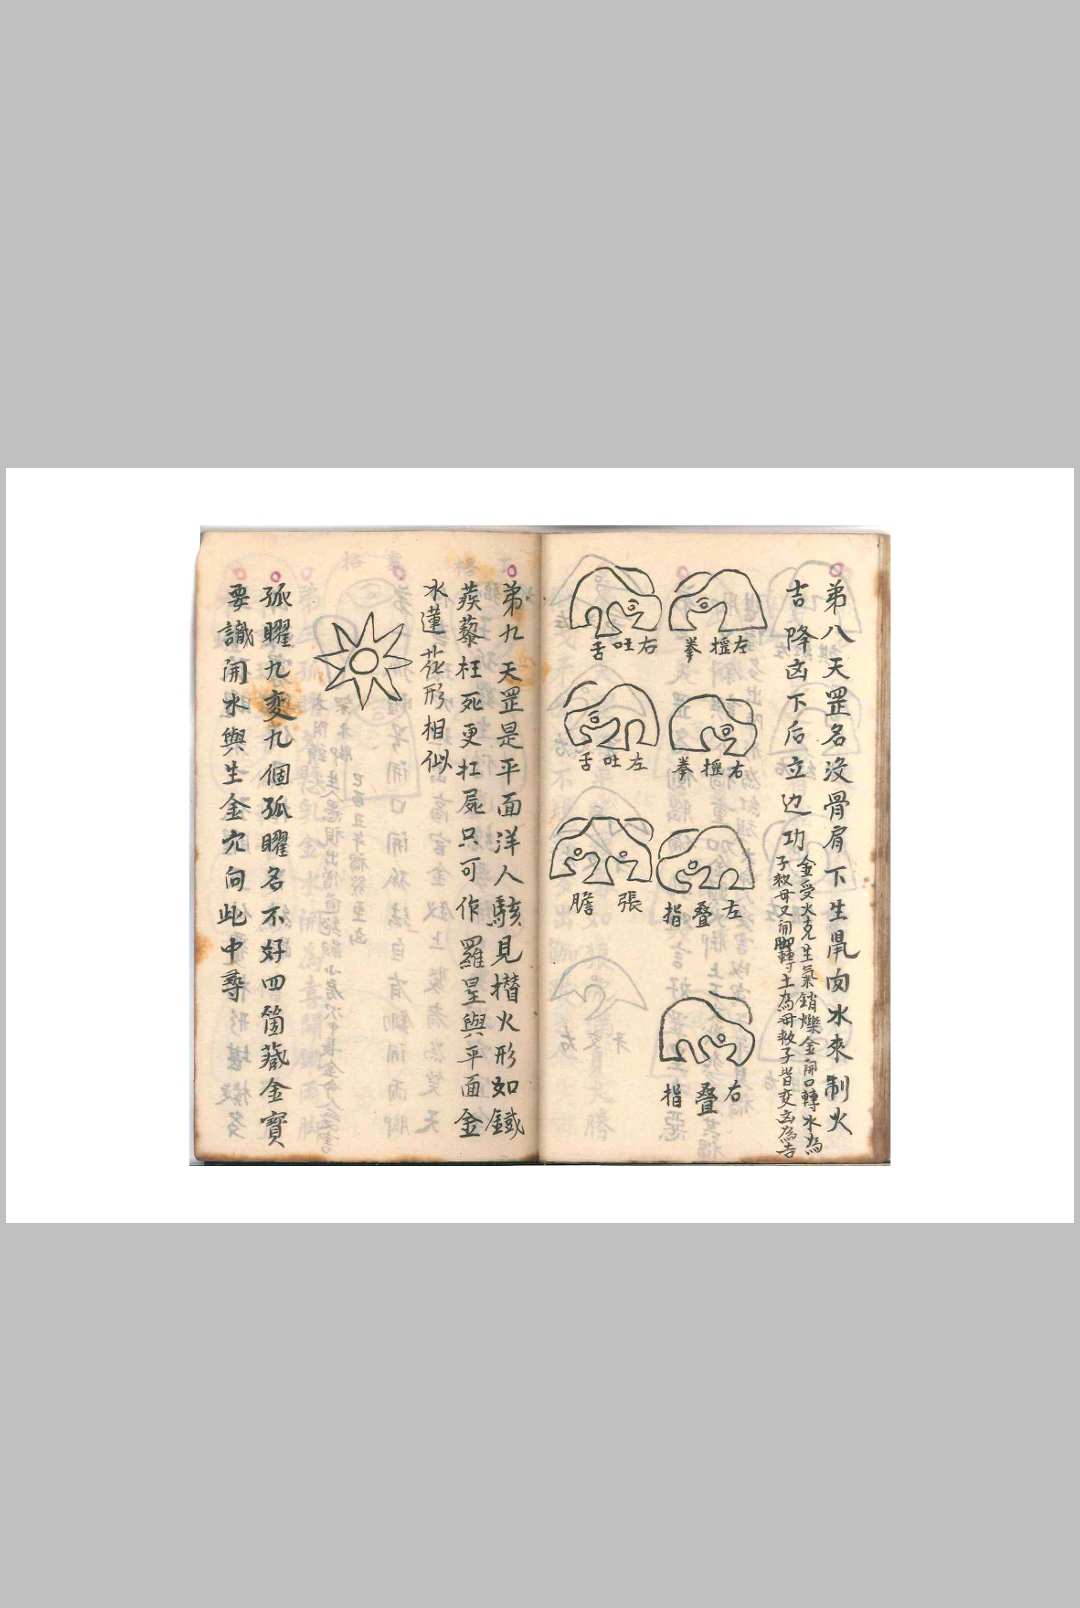 弟八天罡名没骨肩下生凥向水來制火
吉降凶下后立边功
金受火克生氣銷爍金開口轉水為
子救母又開脚轉土為母救子皆変凶為吉
左摳拳
右吐舌
右摳拳
左吐舌
左叠指
張膽
右叠指
弟九天罡是平面洋人駭見撍火形如鐵
蒺藜枉死更扛屍只可作羅星與平面金
水蓮花形相似
孤曜九変九個孤曜名不好四箇藏金寳
要識開水與生金穴向此中尋